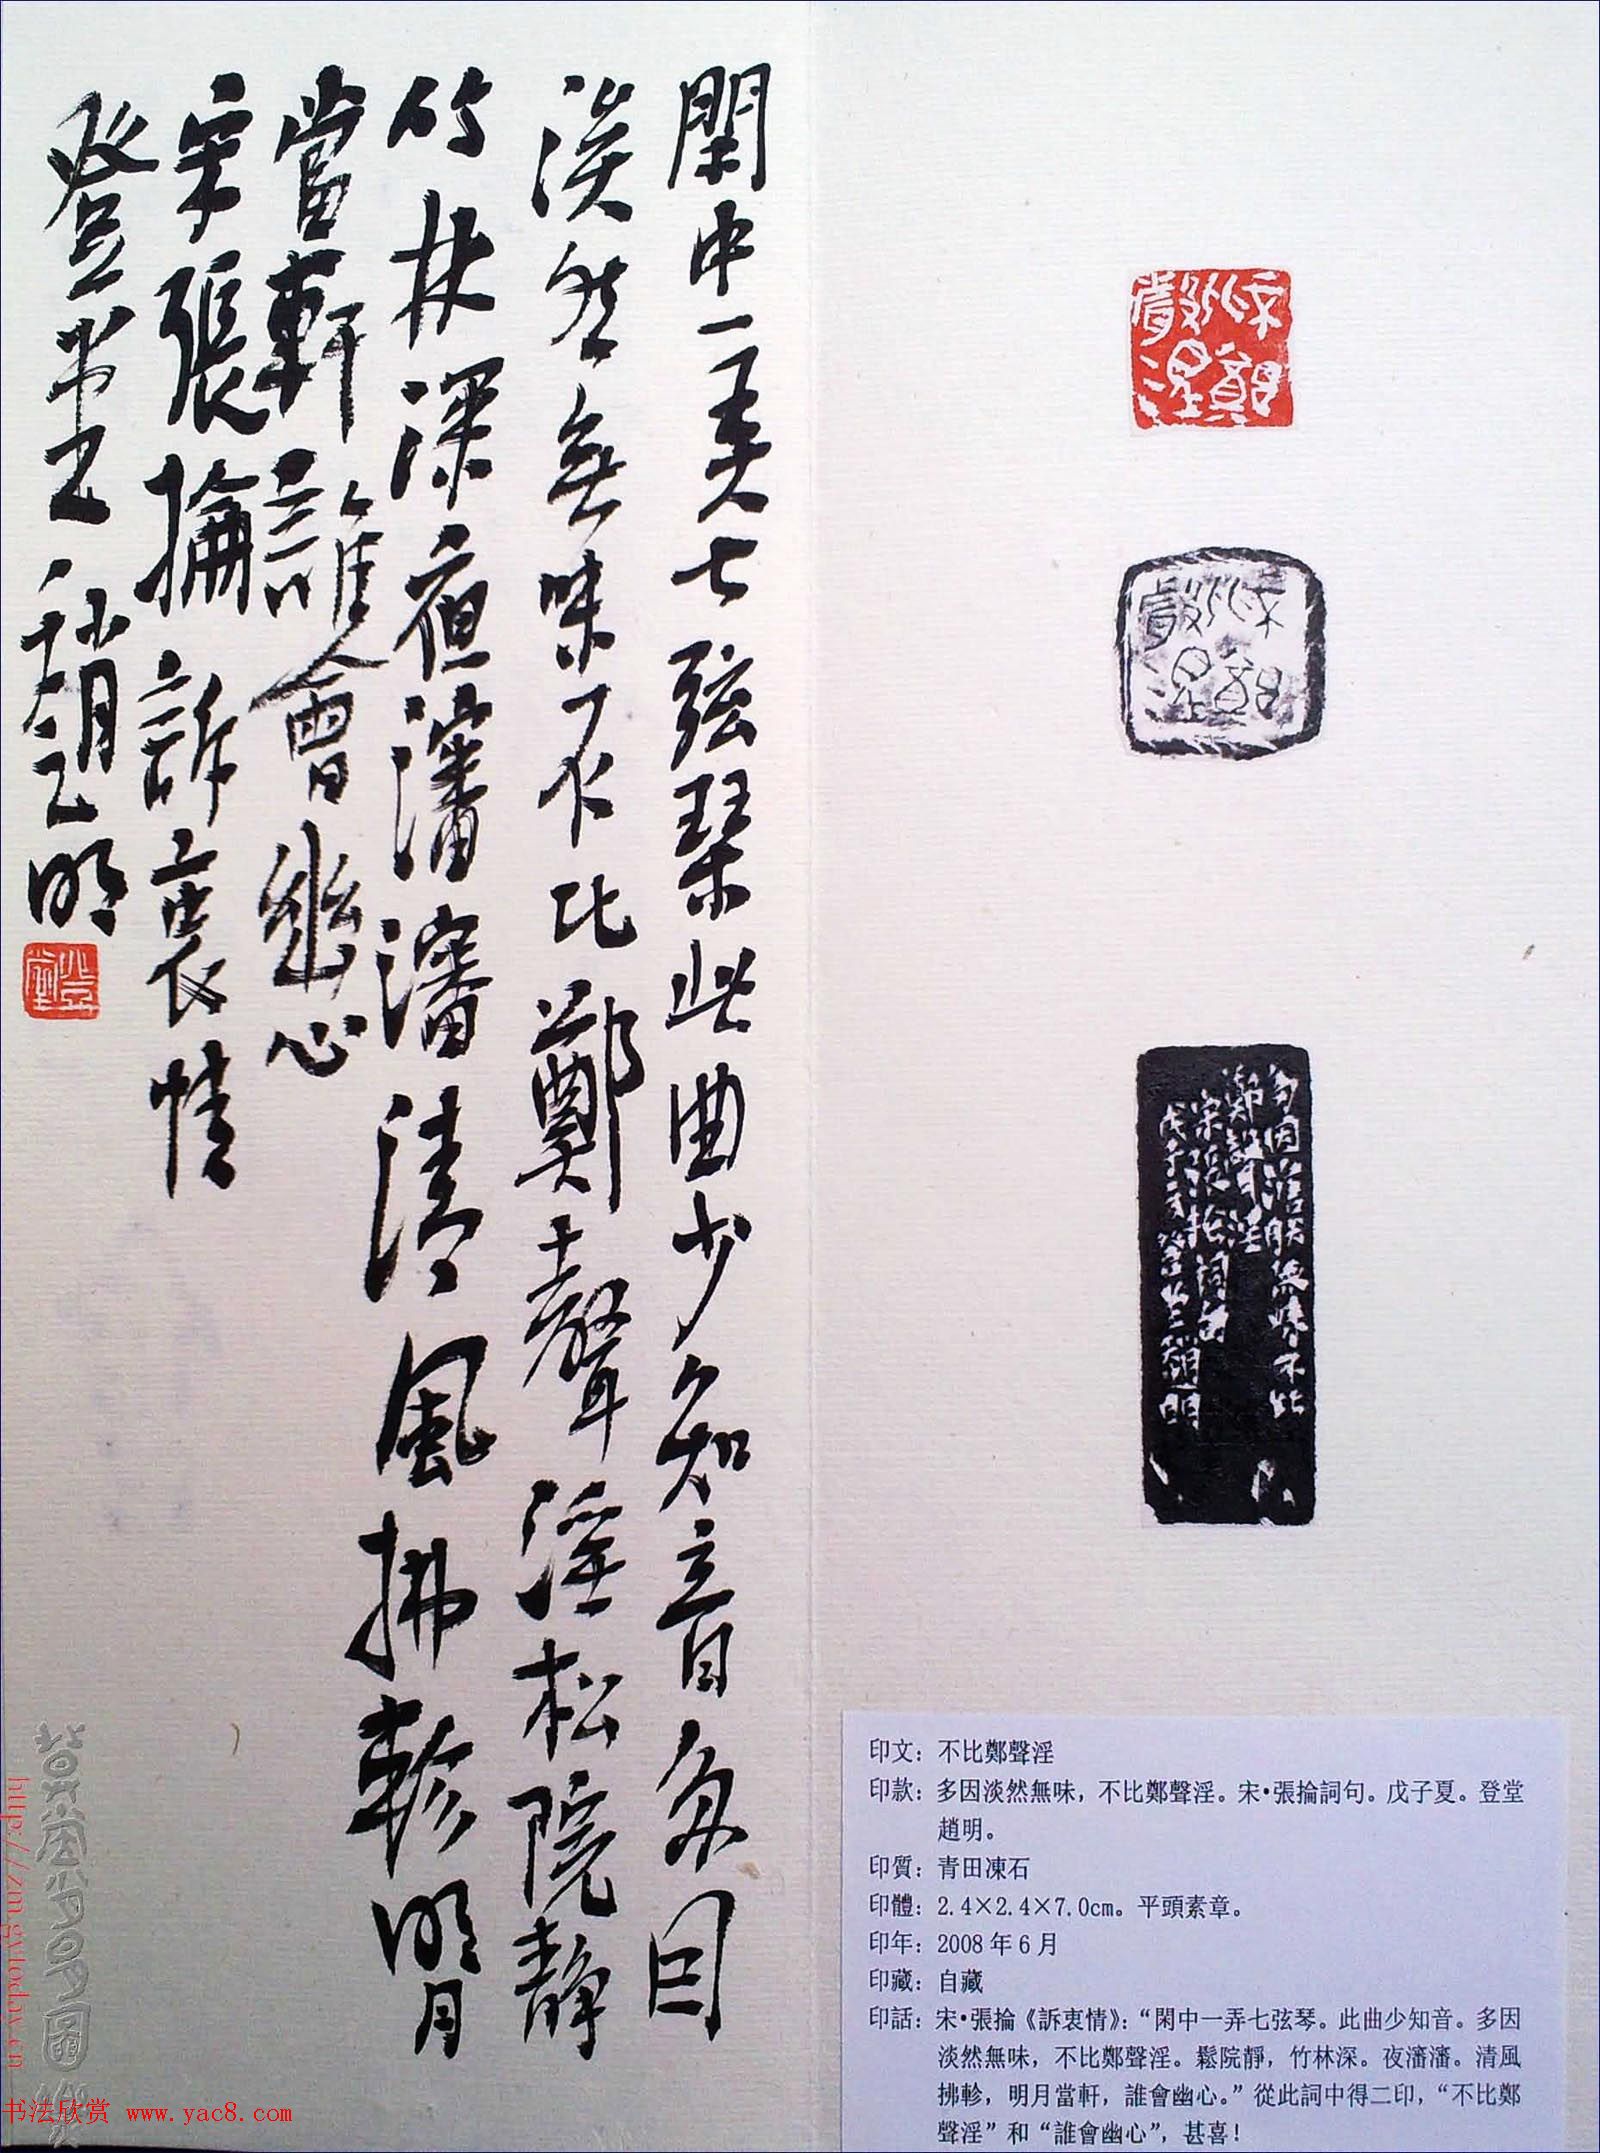 閑中一弄七弦琴此曲少知音多因
淡然無味不比鄭聲淫松院靜
竹林深夜瀋瀋清風拂軫明月
當軒誰會幽心
宋張掄訴衷情
登堂趙明
登堂
不比鄭聲淫
不比鄭聲淫
多因淡然無味不比
鄭聲淫
宋張掄詞句
戊子夏登堂趙明
印文：不比鄭聲淫
印款：多因淡然無味，不比鄭聲淫。宋•張掄詞句。戊子夏。登堂
趙明。
印質：青田凍石
印體：2.4×2.4×7.0cm。平頭素章。
印年：2008年6月
印藏：自藏
印話：宋•張掄《訴衷情》：“閑中一弄七弦琴。此曲少知音。多因
淡然無味，不比鄭聲淫。鬆院靜，竹林深。夜瀋瀋。清風
拂軫，明月當軒，誰會幽心。”從此詞中得二印，“不比鄭
聲淫”和“誰會幽心”，甚喜！
http://zm.gytoday.cn
书法欣赏 www.yac8.com